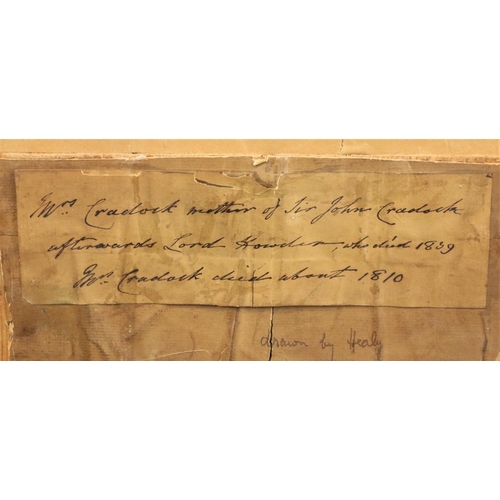 Mrs Cradock mother of Sir John Cradock
afterwards Lord Howden, who died 1839
Mrs Cradock died about 1810
drawn by Healy